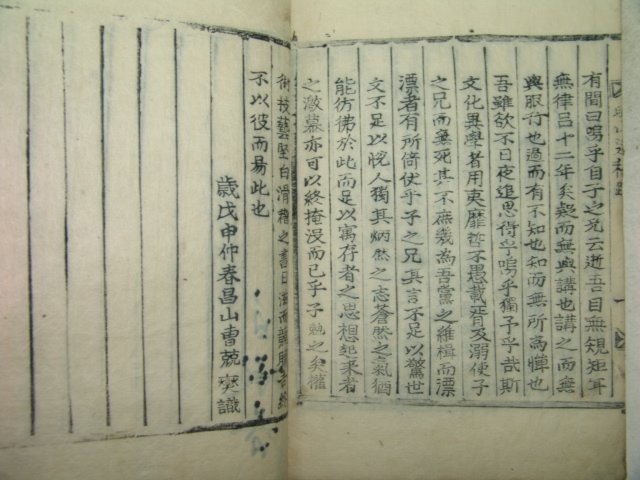 有間曰嗚乎自子之兄云逝吾目無規矩耳
無律呂十二年矣疑而無與講也講之而無
與服行也過而有不知也知而無所爲憚也
吾雖欲不日夜追思得乎嗚乎獨予乎哉斯
文化異學者用夷靡哲不愚載胥及溺使子
之兄而無死其不庶幾爲吾黨之維楫而漂
漂者有所倚仗乎子之兄其言不足以驚世
文不足以悅人獨其炳然之志蒼然之氣猶
能彷彿於此而足以寓存者之思想起來者
之激慕亦可以終掩沒而已乎子勉之矣權
術技藝堅白滑稽之書日滿而競
不以彼而易此也
歲戊申仲春昌山曺兢燮識